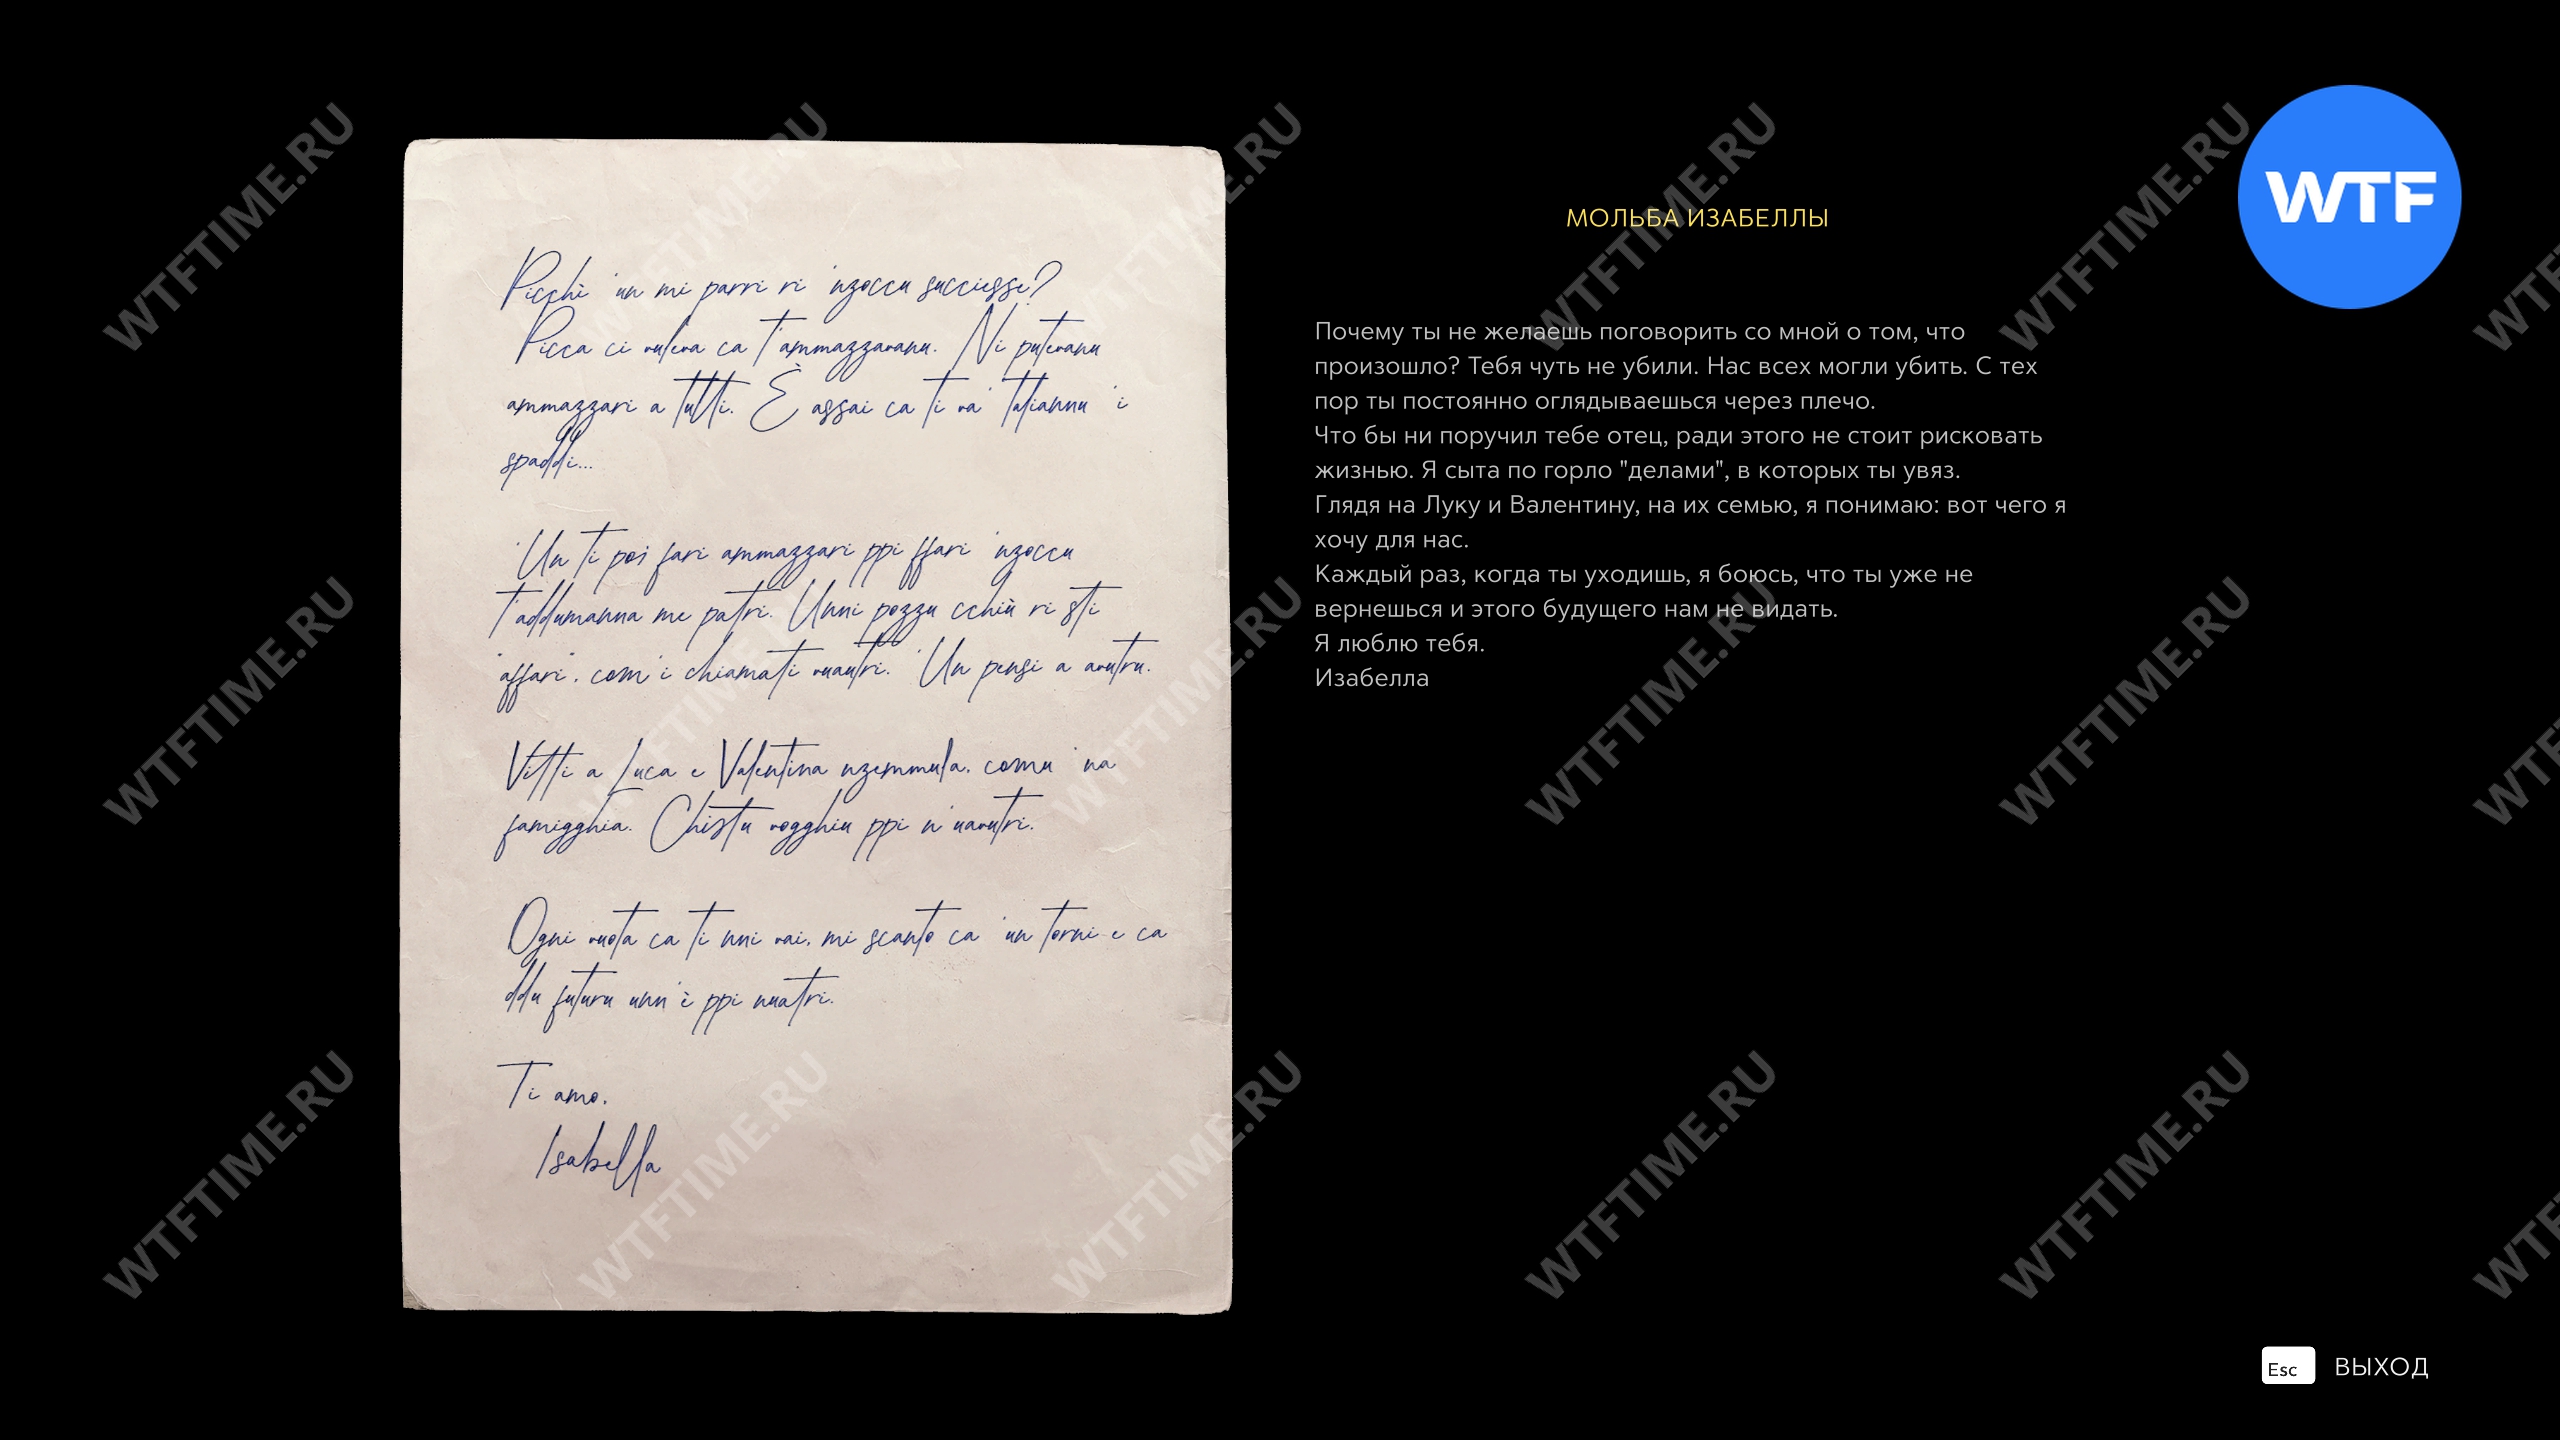 Picchì 'un mi parri ri 'nzoccu successe?
Picca ci vuleva ca t'ammazzavanu. Ni putevanu
ammazzari a tutti. È assai ca ti va' taliannu 'i
spaddi...
'Un ti poi fari ammazzari ppi ffari 'nzoccu
t'addumanna me patri. Unni pozzu cchiù ri sti
"affari", com'i chiamati vuautri. 'Un pensi a avutru.
Vitti a Luca e Valentina nzemmula, comu 'na
famigghia. Chistu vogghiu ppi n'uavutri.
Ogni vuota ca ti nni vai, mi scanto ca 'un torni e ca
ddu futuru unn'è ppi nuatri.
Ti amo,
Isabella
МОЛЬБА ИЗАБЕЛЛЫ
Почему ты не желаешь поговорить со мной о том, что
произошло? Тебя чуть не убили. Нас всех могли убить. С тех
пор ты постоянно оглядываешься через плечо.
Что бы ни поручил тебе отец, ради этого не стоит рисковать
жизнью. Я сыта по горло "делами", в которых ты увяз.
Глядя на Луку и Валентину, на их семью, я понимаю: вот чего я
хочу для нас.
Каждый раз, когда ты уходишь, я боюсь, что ты уже не
вернешься и этого будущего нам не видать.
Я люблю тебя.
Изабелла
WTF
WTFTIME.RU
Esc ВЫХОД